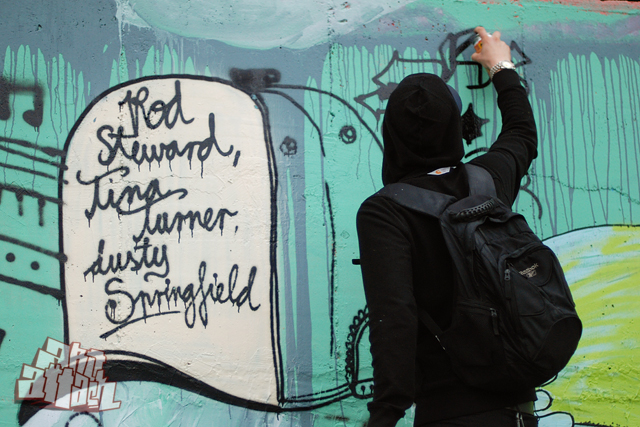 Rod
Steward,
Tina
turner,
dusty
Springfield